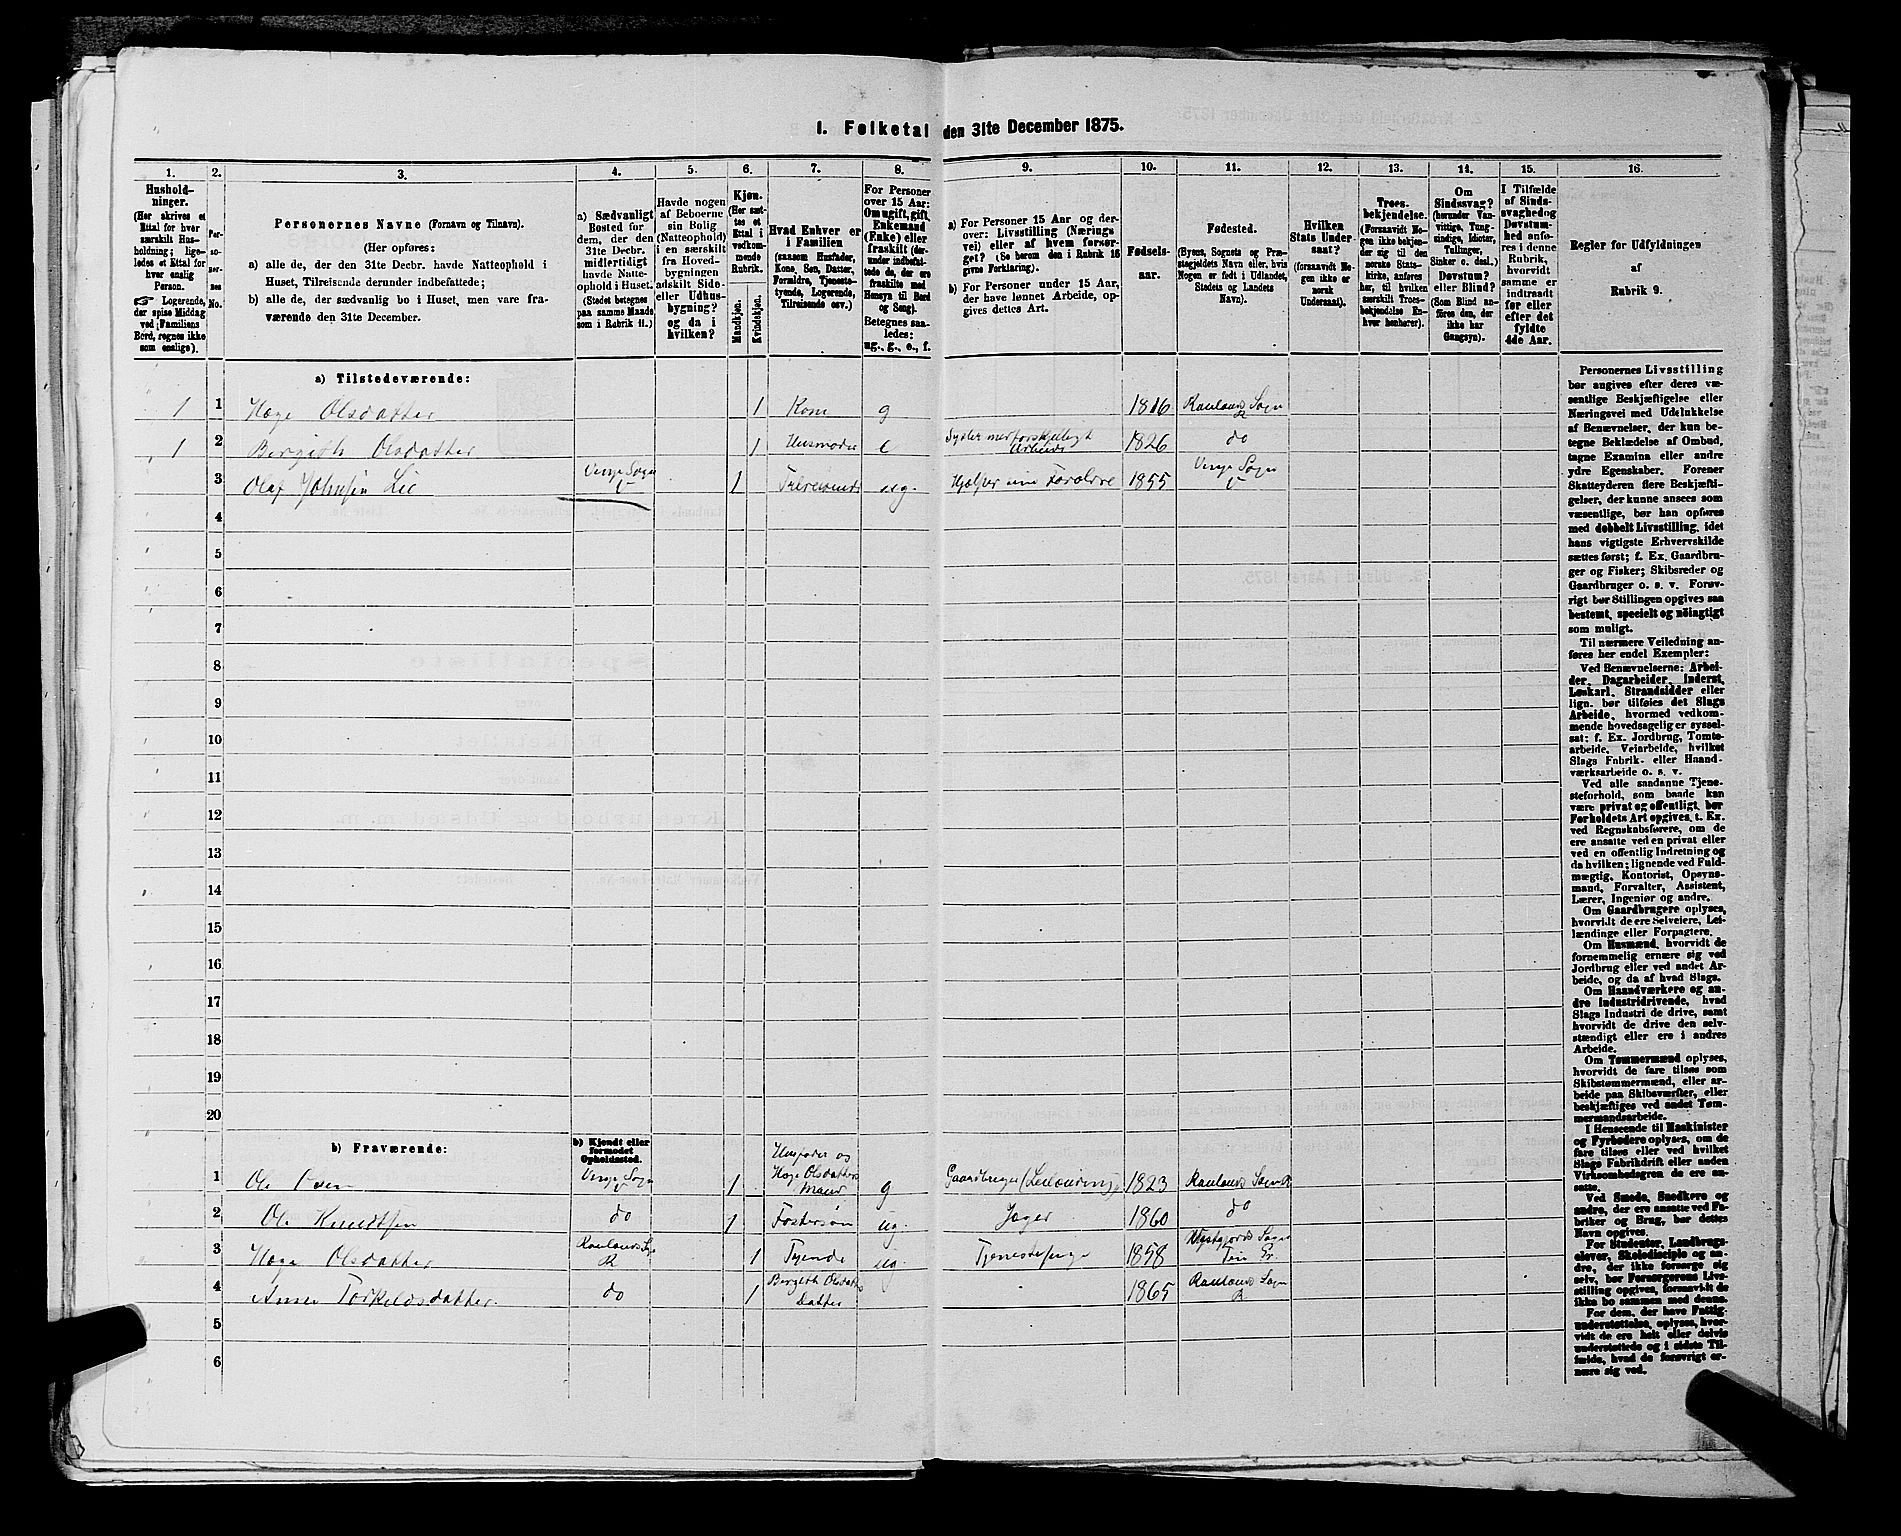 I. Folketal den 31te December 1875.
1. 2. 3. 4. 5. 6. 7. 8. 9. 10. 11. 12. 13. 14. 15. 16.
Hushold-
ninger.
(Her skrives et
Ettal for hver
særskilt Hus-
holdning; lige-
ledes et Ettal for
hver enslig
Person.
☞ Logerende,
der spise Middag
ved Familiens
Bord, regnes ikke
som enslige).
Per-
so-
ner-
nes
No.
Personernes Navne (Fornavn og Tilnavn).
(Her opføres:
a) alle de, der den 31te Decbr. havde Natteophold i
Huset, Tilreisende derunder indbefattede;
b) alle de, der sædvanlig bo i Huset, men vare fra-
værende den 31te December.
a) Sædvanligt
Bosted for
dem, der den
31te Decbr.
midlertidigt
havde Natte-
ophold i Huset.
(Stedet betegnes
paa samme Maade
som i Rubrik 11.)
Havde nogen
af Beboerne
sin Bolig
(Natteophold)
i en særskilt
fra Hoved-
bygningen
adskilt Side-
eller Udhus-
bygning?
og da i
hvilken?
Kjøn.
(Her sæt-
tes et
Ettal i
vedkom-
mende
Rubrik.
Mandkjøn.
Kvindekjøn.
Hvad Enhver er
i Familien
(saasom Husfader,
Kone, Søn, Datter,
Forældre, Tjeneste-
tyende, Logerende,
Tilreisende osv.)
For Personer
over 15 Aar:
Om ugift, gift,
Enkemand
(Enke) eller
fraskilt (der-
under indbefat-
tede de, der ere
fraskilte med
Hensyn til Bord
og Seng).
Betegnes saa-
ledes:
ug., g., e., f.
a) For Personer 15 Aar og der-
over: Livsstilling (Nærings
vei) eller af hvem forsør-
get? (Se herom den i Rubrik 16
givne Forklaring).
b) For Personer under 15 Aar,
der have lønnet Arbeide, op-
gives dettes Art.
Fødsels-
aar.
Fødested.
(Byens, Sognets og Præ-
stegjeldets Navn eller, hvis
Nogen er født i Udlandet,
Stedets og Landets
Navn).
Hvilken
Stats Under-
saat?
(forsaavidt No-
gen ikke er
norsk
Undersaat).
Troes-
bekjendelse.
(Forsaavidt No-
gen ikke bekjen-
der sig til den
norske Stats-
kirke, anføres
her, til hvilken
særskilt Troes-
bekjendelse En-
hver henhører).
Om
Sindssvag?
(herunder Van-
vittige, Tung-
sindige, Idioter,
Tullinger,
Sinker o. desl.)
Døvstum?
eller Blind?
(Som Blind an-
føres den, der
ikke har
Gangsyn).
I Tilfælde
af Sinds-
svaghed og
Døvstum-
hed anfø-
res i denne
Rubrik,
hvorvidt
samme er
indtraadt
før eller
efter det
fyldte
4de Aar.
Regler for Udfyldningen
af
Rubrik 9.
a) Tilstedeværende:
1 1 Hæge Olsdatter 1 Kone g 1816 Raulands Sogn R
1 2 Bergith Olsdatter 1 Husmoder e Sysler med forskjelligt Arbeide 1826 do
3 Olaf Johnsen Lie Vinje Sogn V 1 Tilreisende ug. Hjælper sine Forældre 1855 Vinje Sogn V
4
5
6
7
8
9
10
11
12
13
14
15
16
17
18
19
20
b) Fraværende:
b) Kjendt eller
formodet
Opholdssted.
1 Ole Vinje Sogn V 1 Husfader og Hæge Olsdatters Mand g Gaardbruger 1823 Raulands Sogn R
2 Ole Knudtsen do 1 Fostersøn ug. Jæger 1860 do
3 Hæge Olsdatter Raulands Sogn R 1 Tjende ug. Tjenestepige 1858 Vestfjords Sogn Tin Pr.
4 Anne Torkildsdatter do 1 Bergith Olsdatters Datter 1865 Raulands Sogn R
5
6
Personernes Livsstilling
bør angives efter deres væ-
sentlige Beskjæftigelse eller
Næringsvei med Udelukkelse
af Benævnelser, der kun be-
tegne Beklædelse af Ombud,
tagne Examina eller andre
ydre Egenskaber. Forener
Skatteyderen flere Beskjæfti-
gelser, der kunne ansees som
væsentlige, bør han opføres
med dobbelt Livsstilling, idet
hans vigtigste Erhvervskilde
sættes først; f. Ex. Gaardbru-
ger og Fisker; Skibsreder og
Gaardbruger o. s. v. Forøv-
rigt bør Stillingen opgives saa
bestemt, specielt og nöiagtigt
som muligt.
Til nærmere Veiledning an-
føres her endel Exempler:
Ved Benævnelserne: Arbei-
der, Dagarbeider, Inderst,
Løskarl, Strandsidder eller
lign. bør tilføies det Slags
Arbeide, hvormed vedkom-
mende hovedsagelig er syssel-
sat; f. Ex. Jordbrug, Tomte-
arbeide, Veiarbeide, hvilket
Slags Fabrik- eller Haand-
værksarbeide o. s. v.
Ved alle saadanne Tjene-
steforhold, som baade kan
være privat og offentligt, bør
Forholdets Art opgives, t. Ex.
ved Regnskabsførere, om de
ere ansatte ved en privat eller
ved en offentlig Indretning og
da hvilken; lignende ved Fuld-
mægtig, Kontorist, Opsyns-
mand, Forvalter, Assistent,
Lærer, Ingeniør og andre.
Om Gaardbrugere oplyses,
hvorvidt de ere Selveiere, Lei-
lændinge eller Forpagtere.
Om Husmænd, hvorvidt de
fornemmelig ernære sig ved
Jordbrug eller ved andet Ar-
beide, og da af hvad Slags.
Om Haandværkere og an-
dre Industridrivende, hvad
Slags Industri de drive, samt
hvorvidt de drive den selv-
stændigt eller ere i andres
Arbeide.
Om Tømmermænd oplyses,
hvorvidt de fare tilsøs som
Skibstømmermænd, eller ar-
beide paa Skibsværfter, eller
beskjæftiges ved andet Tøm-
mermandsarbeide.
I Henseende til Maskinister
og Fyrbødere oplyses, om de
fare tilsøs eller ved hvilket
Slags Fabrikdrift eller anden
Virksomhed gren de ere an-
satte.
Ved Smede, Snedkere og
andre, der ere ansatte ved Fa-
briker og Brug, bør dettes
Navn opgives.
For Studenter, Landbrugs-
elever, Skoledisciple og an-
dre, der ikke forsørge sig
selv, bør Forsørgerens Livs-
stilling opgives, forsavidt de
ikke bo sammen med denne.
For dem, der have Fattig-
understøttelse, oplyses, hvor-
vidt de ere helt eller delvis
understøttede og i sidste Til-
fælde, hvad de forøvrigt er-
nære sig ved.